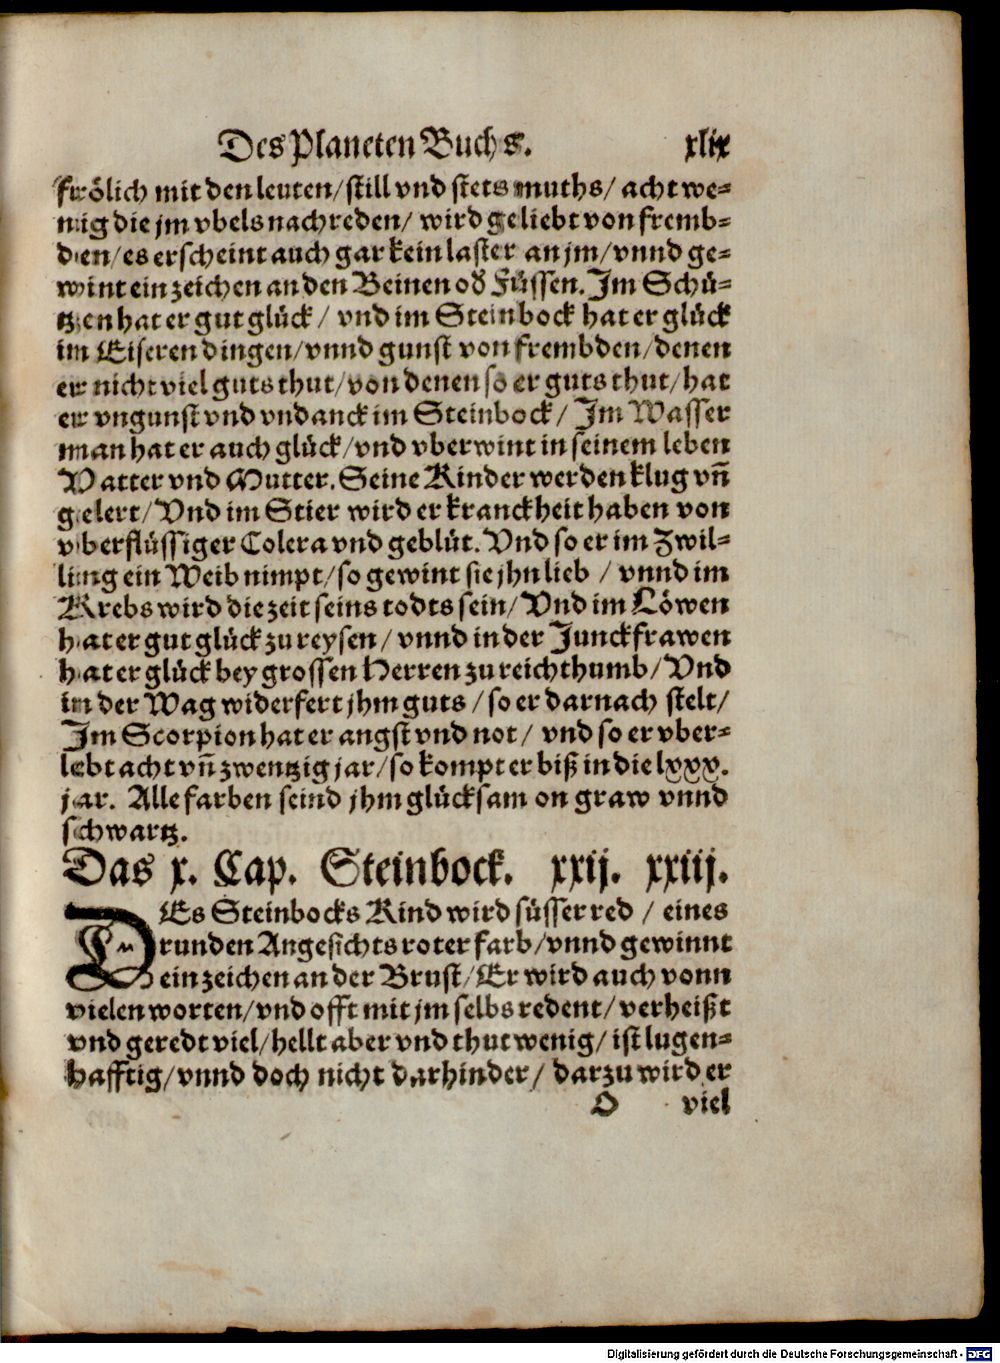 Des Planeten Buchs. xlix
frölich mit den leuten/ still vnd stets muths/ acht we-
nig die jm vbels nachreden/ wird geliebt von fremb-
den/ es erscheint auch gar kein laster an jm/ vnnd ge-
wint ein zeichen an den Beinen oď Füssen. Im Schü-
tzen hat er gut glück/ vnd im Steinbock hat er glück
im Eiseren dingen/ vnnd gunst von frembden/ denen
er nicht viel guts thut/ von denen so er guts thut/ hat
er vngunst vnd vndanck im Steinbock/ Im Wasser
man hat er auch glück/ vnd vberwint in seinem leben
Vatter vnd Mutter. Seine Kinder werden klug vn̄
gelert/ Vnd im Stier wird er kranckheit haben von
vberflüssiger Colera vnd geblüt. Vnd so er im Zwil-
ling ein Weib nimpt/ so gewint sie jhn lieb / vnnd im
Krebs wird die zeit seins todts sein/ Vnd im Löwen
hat er gut glück zu reysen/ vnnd in der Junckfrawen
hat er glück bey grossen Herren zu reichthumb/ Vnd
in der Wag widerfert jhm guts / so er darnach stelt/
Im Scorpion hat er angst vnd not/ vnd so er vber-
lebt acht vn̄ zwentzig jar/ so kompt er biß in die lxxx.
jar. Alle farben seind jhm glücksam on graw vnnd
schwartz.
Das x. Cap. Steinbock. xxij. xxiij.
DEs Steinbocks Kind wird süsser red / eines
runden Angesichts roter farb/ vnnd gewinnt
ein zeichen an der Brust/ Er wird auch vonn
vielen worten/ vnd offt mit jm selbs redent/ verheißt
vnd geredt viel/ hellt aber vnd thut wenig/ ist lugen-
hafftig/ vnnd doch nicht darhinder/ darzu wird er
O viel
Digitalisierung gefördert durch die Deutsche Forschungsgemeinschaft - DFG